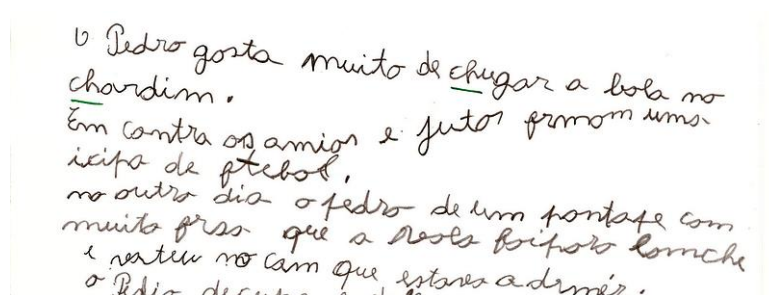 O Pedro gosta muito de chugar a bola no
chardim.
Em contra os amios e jutos frmom uma
icipa de ftebol.
no outro dia o pedro de um pontape com
muita frsa que a bola foi para lomche
e vateu no cam que estava a drmir.
o Pedro